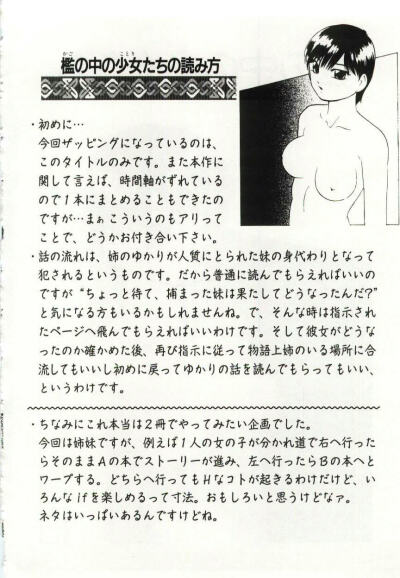 檻の中の少女たちの読み方
かご
ことり
・初めに…
今回ザッピングになっているのは、
このタイトルのみです。また本作に
関して言えば、時間軸がずれている
ので１本にまとめることもできたの
ですが…まぁこういうのもアリってこ
とで、どうかお付き合い下さい。
・話の流れは、姉のゆかりが人質にとられた妹の身代わりとなって
犯されるというものです。だから普通に読んでもらえればいいの
ですが“ちょっと待て、捕まった妹は果たしてどうなったんだ？”
と気になる方もいるかもしれませんね。で、そんな時は指示され
たページへ飛んでもらえればいいわけです。そして彼女がどうな
ったのか確かめた後、再び指示に従って物語上姉のいる場所に合
流してもいいし初めに戻ってゆかりの話を読んでもらってもいい、
というわけです。
・ちなみにこれ本当は２冊でやってみたい企画でした。
今回は姉妹ですが、例えば１人の女の子が分かれ道で右へ行った
らそのままＡの本でストーリーが進み、左へ行ったらＢの本へと
ワープする。どちらへ行ってもＨなコトが起きるわけだけど、い
ろんなｉｆを楽しめるって寸法。おもしろいと思うけどなァ。
ネタはいっぱいあるんですけどね。